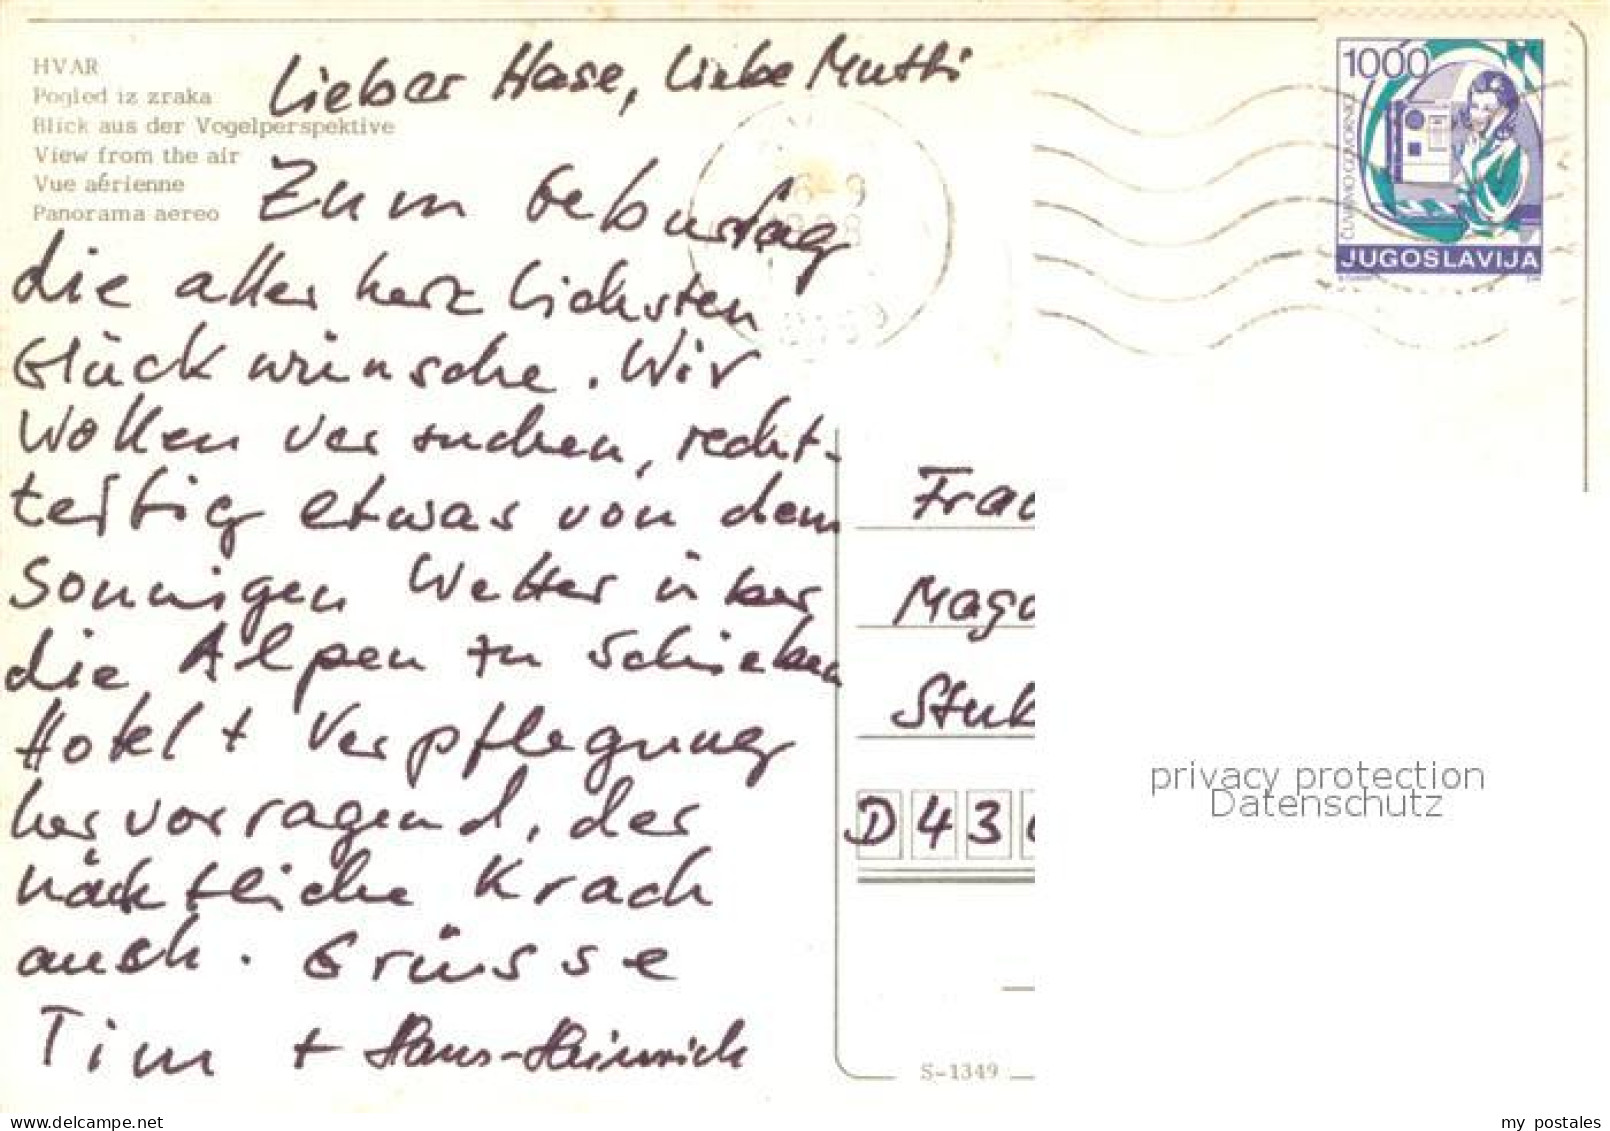 HVAR
Pogled iz zraka
Blick aus der Vogelperspektive
View from the air
Vue aérienne
Panorama aereo
Lieber Hase, liebe Mutti
Zum Geburtstag
die aller herzlichsten
Glückwünsche. Wir
wollen versuchen, recht-
zeitig etwas von dem
sonnigen Wetter über
die Alpen zu schieben
Hotel + Verpflegung
hervorragend, der
nächtliche Krach
auch. Grüsse
Tim + Hans-Heinrich
1000
ČUVAJMO GOVORNICE
JUGOSLAVIJA
Frau
Magd
Stub
D 43
S-1349
privacy protection
Datenschutz
delcampe.net
my_postales